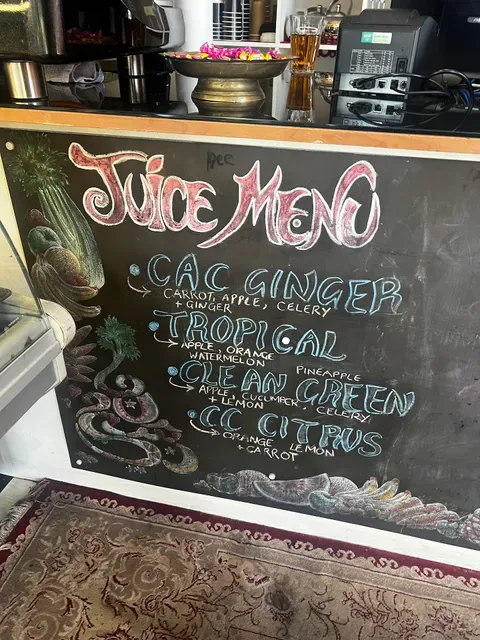 JUICE MENU
CAC GINGER
CARROT, APPLE, CELERY
+ GINGER
TROPICAL
APPLE, ORANGE
WATERMELON PINEAPPLE
CLEAN GREEN
APPLE, CUCUMBER, CELERY
+ LEMON
CC CITRUS
ORANGE LEMON
+ CARROT